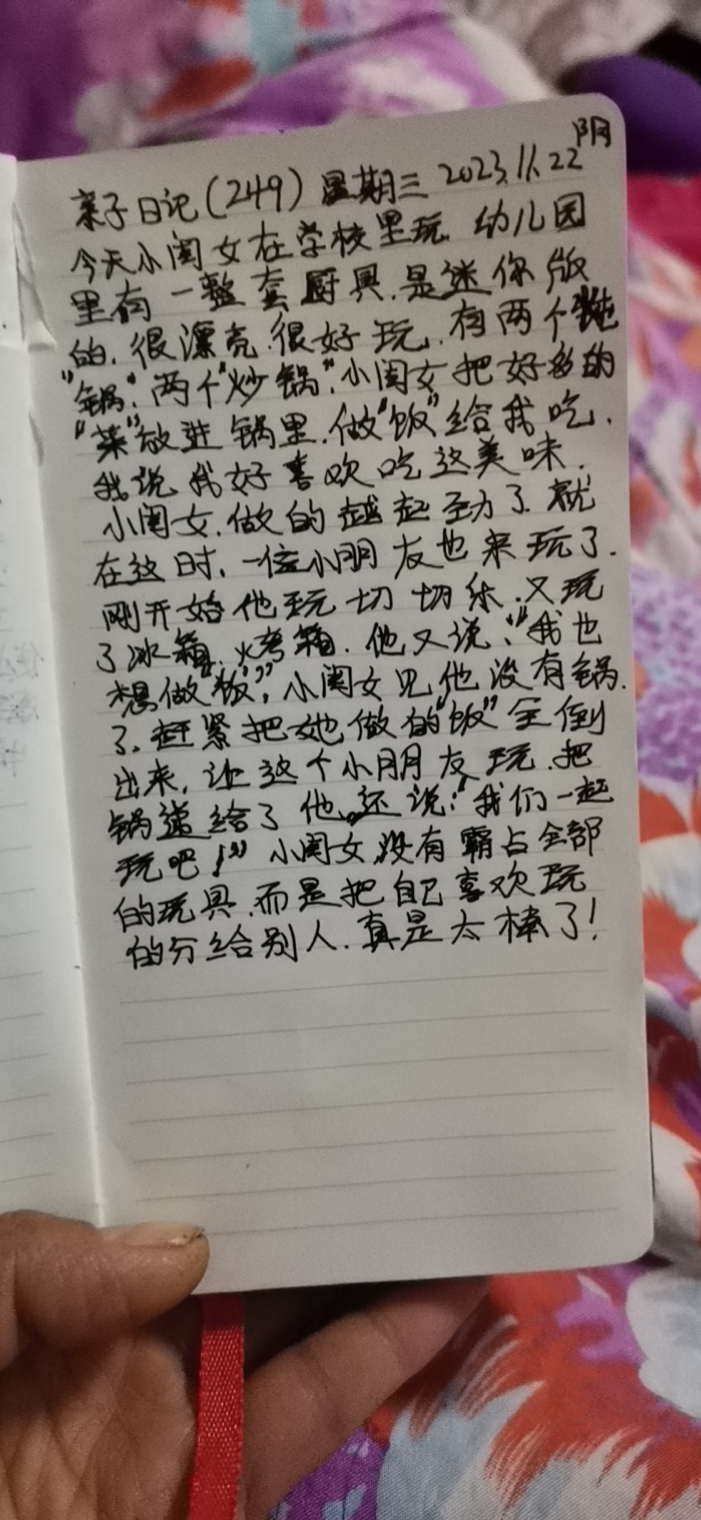 亲子日记(249) 星期三 2023.11.22 阴
今天小闺女在学校里玩, 幼儿园
里有一整套厨具.是迷你版
的.很漂亮.很好玩.有两个炖
“锅”.两个“炒锅”.小闺女把好多的
“菜”放进锅里.做“饭”给我吃.
我说我好喜欢吃这美味.
小闺女.做的越起劲了.就
在这时.一位小朋友也来玩了.
刚开始他玩切切乐.又玩
了冰箱.烤箱.他又说:“我也
想做“饭”,”小闺女见他没有锅.
了.赶紧把她做的“饭”全倒
出来,让这个小朋友玩.把
锅递给了他.还说:“我们一起
玩吧!”小闺女没有霸占全部
的玩具.而是把自己喜欢玩
的分给别人.真是太棒了!